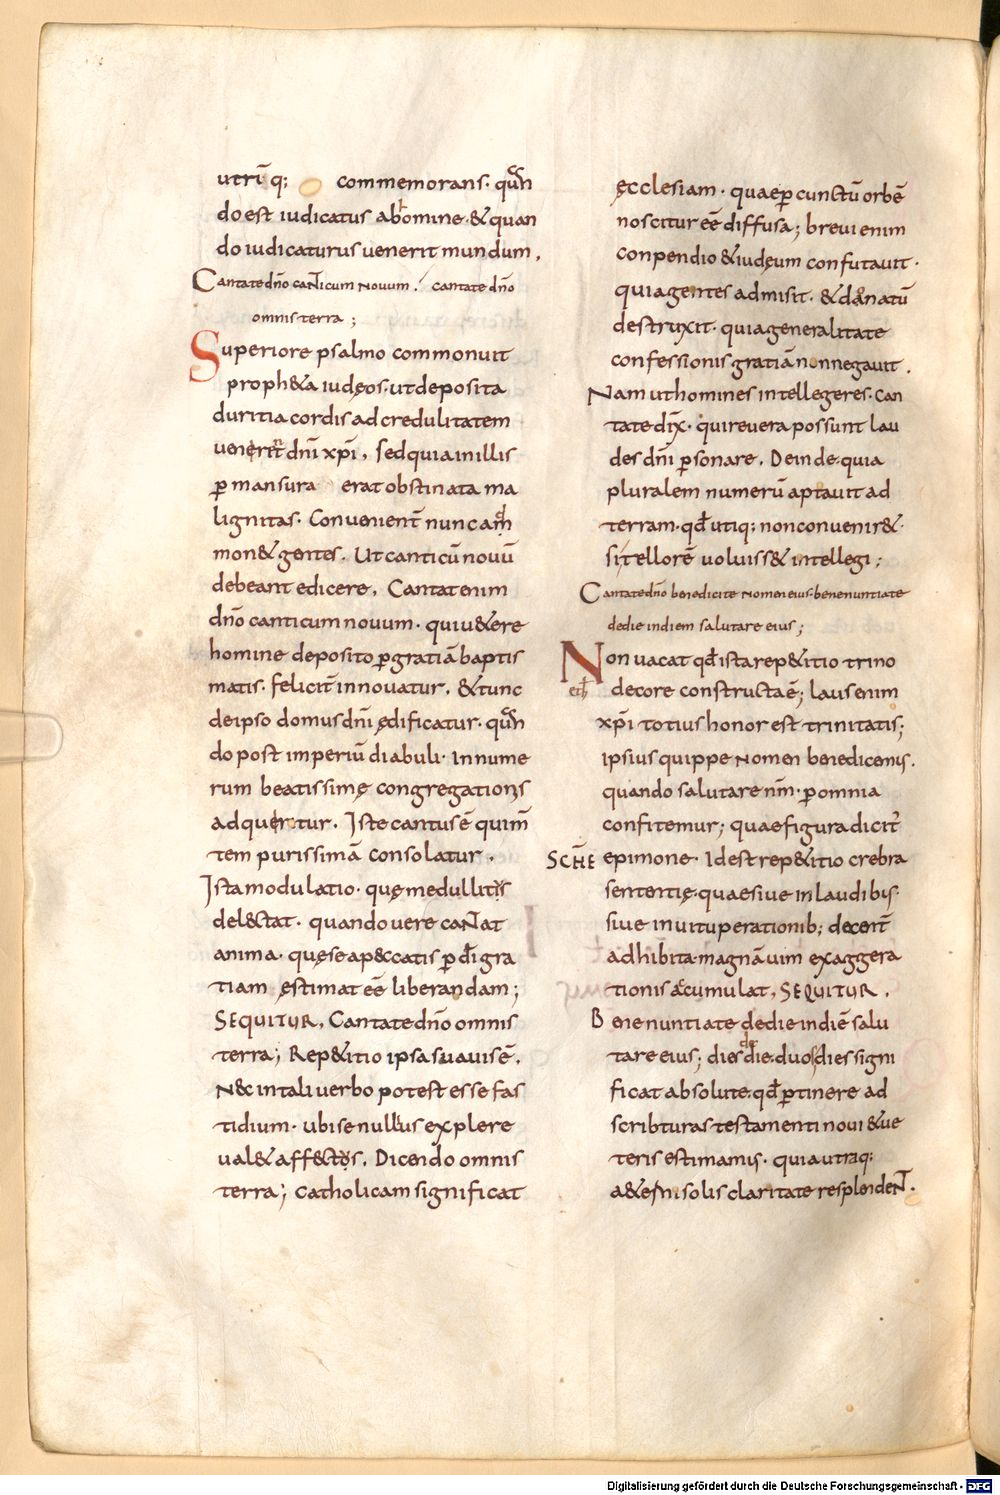 utrīq; commemorans· quān
do est iudicatus ab homine· & quan
do iudicaturus uenerit mundum,
Cantate dn̄o canticum nouum· cantate dn̄o
omnis terra;
Superiore psalmo commonuit
proph&a iudęos· ut deposita
duritia cordis ad credulitatem
dn̄i xp̄i, sed quia in illis
ꝑmansura erat obstinata ma
lignitas· Conuenienter nunc am̄
mon& gentes. Ut canticū nouū
debeant edicere, Cantat enim
dn̄o canticum nouum· qui u&ere
homine deposito ꝑ gratiā baptis
matis· feliciter innouatur, & tunc
de ipso domus dn̄i ędificatur· quān
do post imperiū diabuli· In nume
rum beatissimę congregationis
adquęritur. Iste cantus ē qui m̄
tem purissimā consolatur.
Ista modulatio· quę medullitus
del&tat· quando uere cantat
anima· quę se a p&ccatis ꝑ dī gra
tiam ęstimat eē liberandam;
SEQUITUR, Cantate dn̄o omnis
terra; Rep&itio ipsa suauis ē,
N& in tali uerbo potest esse fas
tidium· ubi se nullus explere
ual& aff&tus, Dicendo omnis
terra; catholicam significat
ęcclesiam· quae ꝑ cunctū orbē
noscitur eē diffusa; breui enim
conpendio & iudęum confutauit·
quia gentes admisit· & donatū
destruxit· quia generalitate
confessionis gratiā non negauit.
Nam ut homines intellegeres· can
tate dix̄· qui reuera possunt lau
des dn̄i ꝑsonare, Deinde· quia
pluralem numerū aptauit ad
terram· qđ utiq; non conuenir&·
si tellorē uoluiss& intellegi;
Cantate dn̄o benedicite nomen eius· bene nuntiate
de die in diem salutare eius;
Non uacat qđ ista rep&itio trino
decore constructa ē; laus enim
xp̄i totius honor est trinitatis;
Ipsius quippe nomen benedicimus,
quando salutare nm̄· ꝑ omnia
confitemur; quae figura dicit̄
SCHE epimone· Idest rep&itio crebra
sententię· quae siue in laudibus·
siue in uituperationib; decenter
adhibita· magnā uim exaggera
tionis accumulat, SEQUITUR,
Bene nuntiate de die in diē salu
tare eius; dies de die· duos dies signi
ficat absolute· qđ ꝑtinere ad
scribturas testamenti noui & ue
teris estimamus· quia utraq;
a&erni solis claritate resplendent.
Digitalisierung gefördert durch die Deutsche Forschungsgemeinschaft - DFG